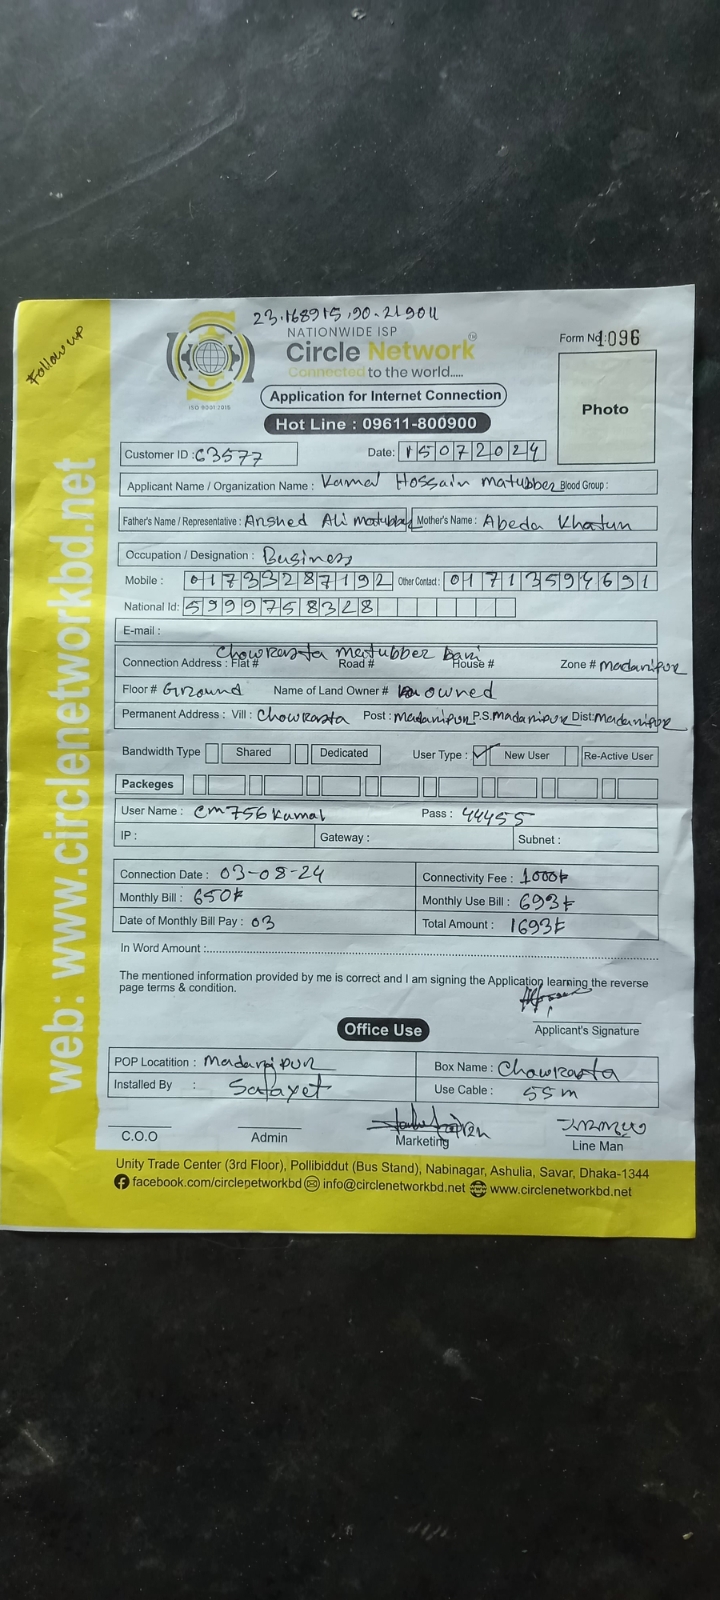 Follow up
23.168915,90.219011
NATIONWIDE ISP
Circle Network
Connected to the world.....
ISO 9001:2015
Form No: 1096
Application for Internet Connection
Photo
Hot Line : 09611-800900
Customer ID : C3577 Date: 15072024
Applicant Name / Organization Name : Kamal Hossain Matubber Blood Group :
Father's Name / Representative : Arshed Ali Matubber Mother's Name : Abeda Khatun
Occupation / Designation : Business
Mobile : 01733287192 Other Contact : 01713594691
National Id: 5999758328
E-mail :
Chowrasta matubber bari
Connection Address : Flat # Road # House # Zone # Madaripur
Floor # Ground Name of Land Owner # owned
Permanent Address : Vill : Chowrasta Post : Madaripur P.S. Madaripur Dist: Madaripur
Bandwidth Type Shared Dedicated User Type : New User Re-Active User
Packeges
User Name : cm756kamal Pass : 44455
IP : Gateway : Subnet :
Connection Date : 03-08-24 Connectivity Fee : 1000৳
Monthly Bill : 650৳ Monthly Use Bill : 693৳
Date of Monthly Bill Pay : 03 Total Amount : 1693৳
In Word Amount :
The mentioned information provided by me is correct and I am signing the Application learning the reverse
page terms & condition.
Applicant's Signature
Office Use
POP Locatition : Madaripur Box Name : Chowrasta
Installed By : Safayet Use Cable : 55m
C.O.O Admin Marketing Line Man
Unity Trade Center (3rd Floor), Pollibiddut (Bus Stand), Nabinagar, Ashulia, Savar, Dhaka-1344
facebook.com/circlenetworkbd info@circlenetworkbd.net www.circlenetworkbd.net
web: www.circlenetworkbd.net